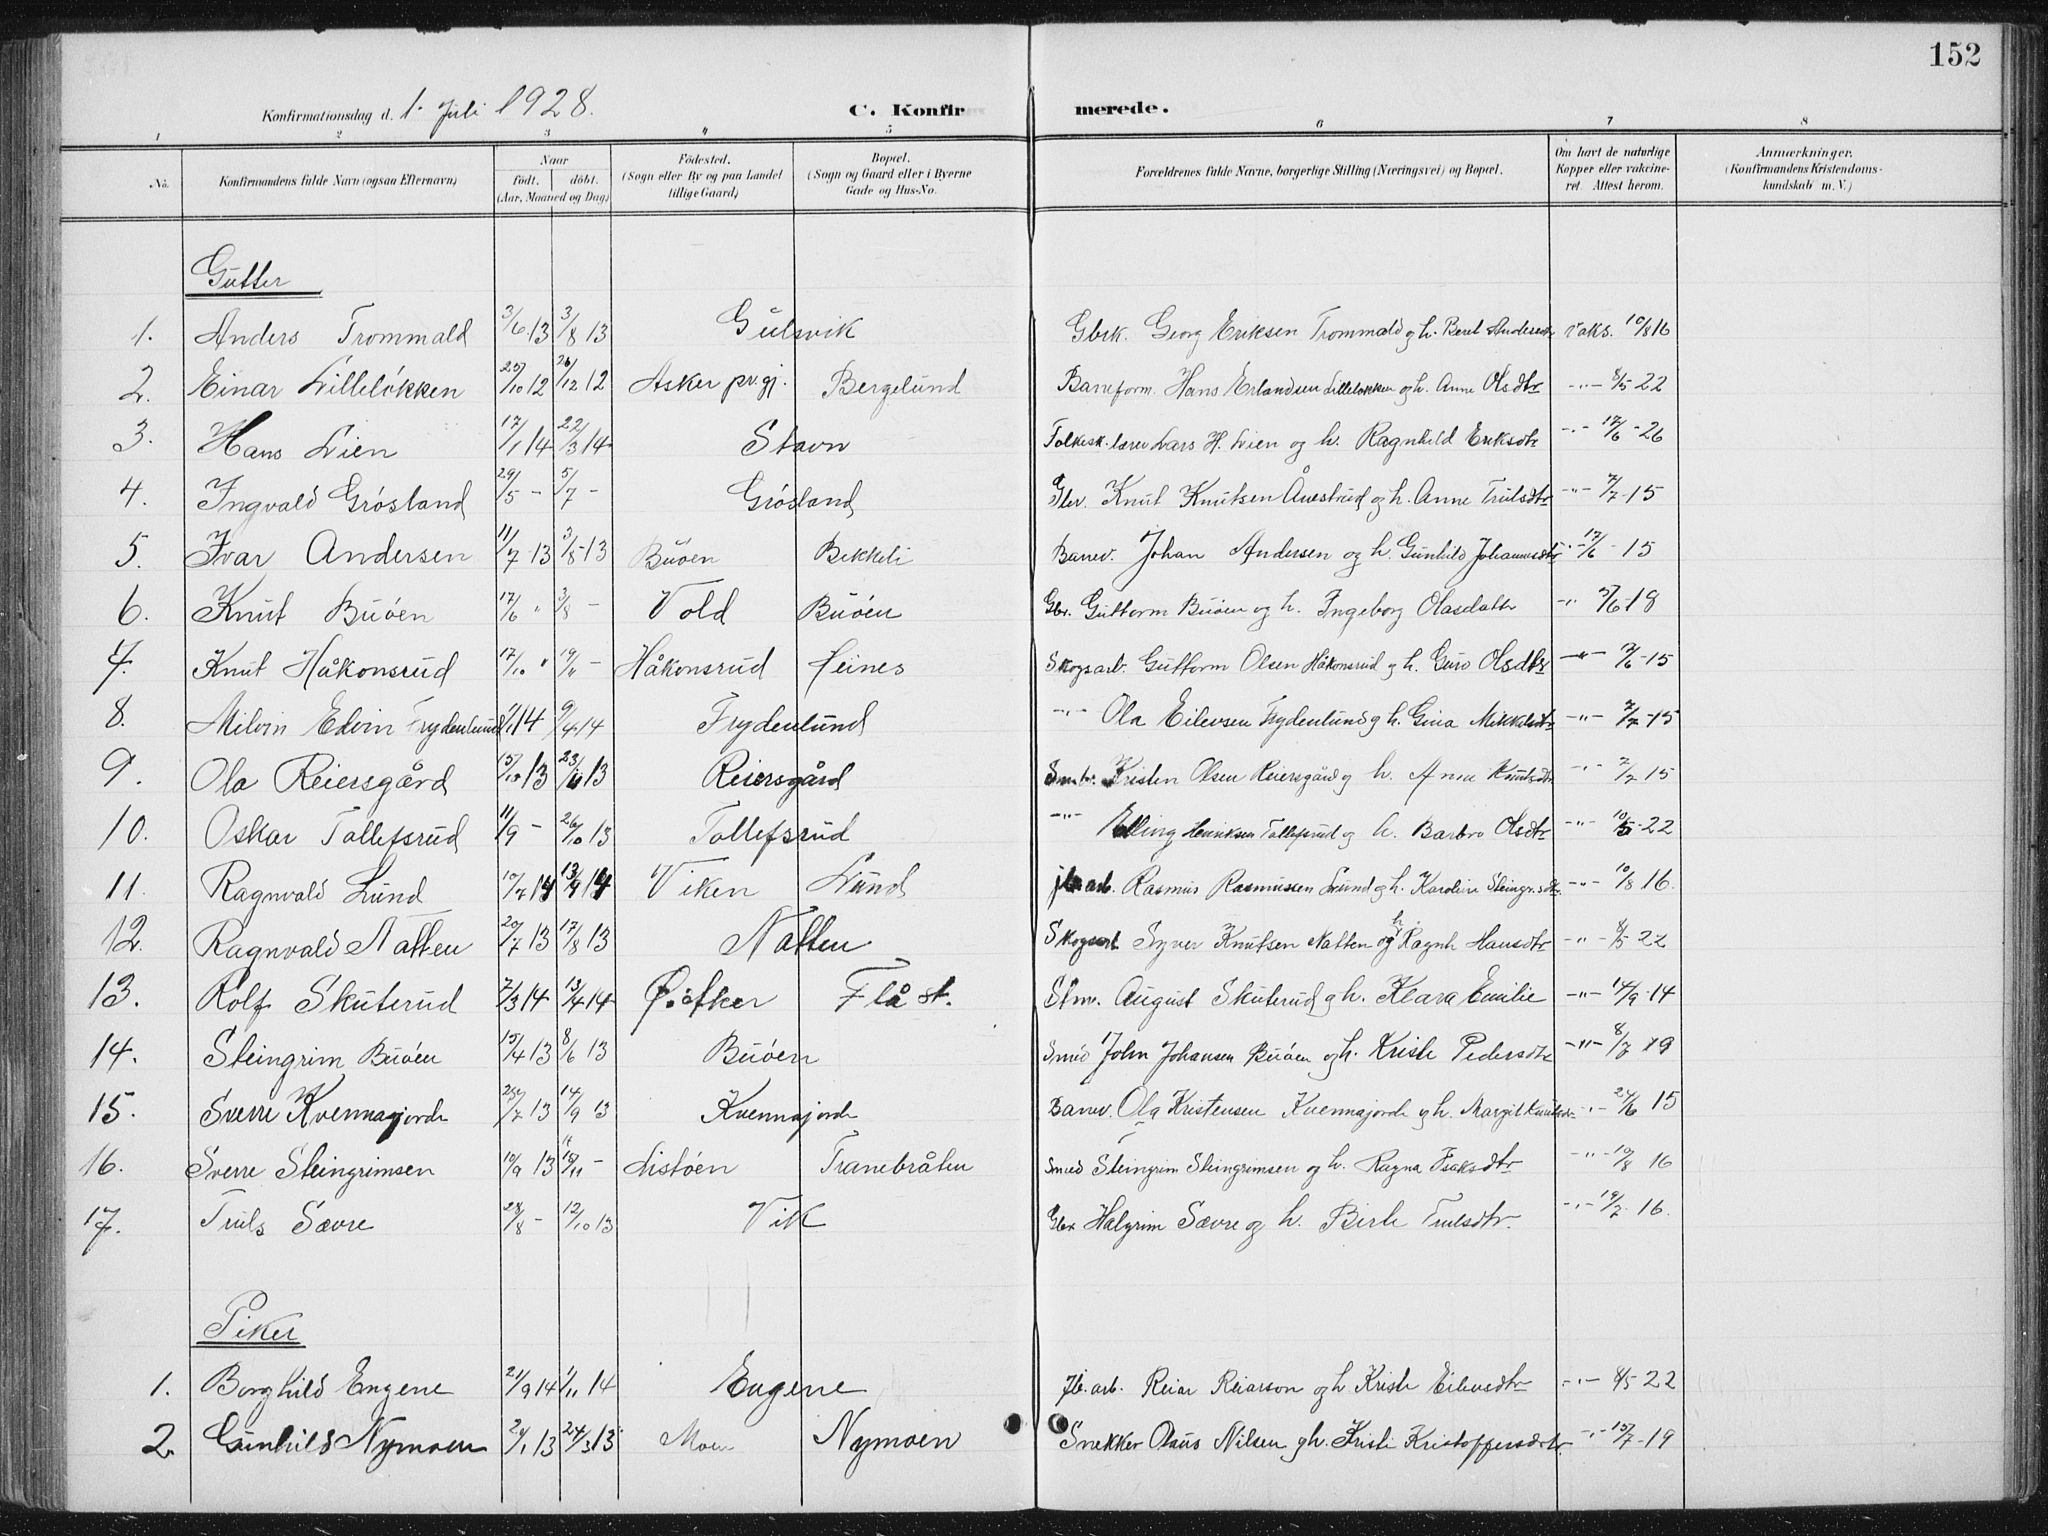 152
Konfirmationsdag d. 1. Juli 1928. C. Konfirmerede.
1 2 3 4 5 6 7 8
No. Konfirmandens fulde Navn (ogsaa Efternavn) Naar født. døbt. (Aar, Maaned og Dag) Fødested. (Sogn eller By og paa Landet tillige Gaard) Bopæl. (Sogn og Gaard eller i Byerne Gade og Hus-No. Forældrenes fulde Navne, borgerlige Stilling (Næringsvei) og Bopæl. Om havt de naturlige Kopper eller vakcineret. Attest herom. Anmærkninger. (Konfirmandens Kristendomskundskab m. V.)
Gutter
1. Anders Trommald 3/6 13 3/8 13 Gulsvik Gbrk. Georg Eriksen Trommald og h. Beret Andersdtr vaks. 10/8 16
2. Einar Lilleløkken 25/10 12 26/12 12 Asker pr.gj. Bergelund Baneform. Hans Erlandsen Lilleløkken og h. Anne Olsdtr -"- 8/5 22
3. Hans Lien 17/1 14 22/3 14 Stavn Folkesk.lærer Lars H. Lien og h. Ragnhild Eriksdtr -"- 17/6 - 26
4. Ingvald Grøsland 29/5 - 5/7 - Grøsland Gbr. Knut Knutsen Åvestrud og h. Anne Trulsdtr -"- 7/7 - 15
5. Ivar Andersen 11/7 - 13 3/8 - 13 Buøen Bekkeli Banev. Johan Andersen og h. Gunhild Johannesdtr -"- 17/6 - 15
6. Knut Buøen 17/6 " 3/8 - Vold Buøen Gbr. Guttorm Buøen og h. Ingeborg Olasdatter -"- 5/6 - 18
7. Knut Håkonsrud 17/10 " 19/11 - Håkonsrud Heines Skogsarb. Guttorm Olsen Håkonsrud og h. Guro Olsdtr -"- 7/6 - 15
8. Milvin Edvin Frydenlund 1/1 14 9/4 14 Frydenlund -"- Ola Eilevsen Frydenlund og h. Gina Mikkelsdtr -"- 7/7 - 15
9. Ola Reiersgård 15/10 13 23/11 13 Reiersgård Smbr. Kristen Olsen Reiersgård og h. Anne Knutsdtr -"- 7/7 15
10. Oskar Tollefsrud 11/9 - 26/10 13 Tollefsrud -"- Elling Henriksen Tollefsrud og h. Barbro Olsdtr -"- 10/5 - 22
11. Ragnvald Lund 10/7 14 13/9 14 Viken Lund jb.arb. Rasmus Rasmussen Lund og h. Karoline Steingr.sdtr -"- 10/8 16.
12. Ragnvald Natten 20/7 13 17/8 13 Natten Skogsarb Syver Knutsen Natten og h Ragnh. Hansdtr -"- 8/5 22
13. Rolf Skuterud 7/3 14 13/4 14 Flå st. Stmv. August Skuterud og h. Klara Emilie -"- 14/9 - 14
14. Steingrim Buøen 15/4 13 8/6 13 Buøen Smed John Johansen Buøen og h. Kristi Pedersdtr -"- 8/7 19
15. Sverre Kvennajorde 25/7 13 14/9 13 Kvennajorde Banev. Ola Kristensen Kvennajorde og h. Margit Knutsdtr -"- 24/6 15
16. Sverre Steingrimsen 10/9 13 16/11 - Listøen Tranebråten Smed Steingrim Steingrimsen og h. Ragna Isaksdtr -"- 10/8 16
17. Truls Sævre 28/8 - 12/10 13 Vik Gbr Halgrim Sævre og h. Birte Trulsdtr. -"- 19/7 16.
Piker
1. Borghild Engene 21/9 14 1/11 14 Engene Jb.arb. Reiar Reiarson og h. Kristi Eilevsdtr -"- 8/5 22
2. Gunhild Nymoen 24/1 13 24/3 13 Moen Nymoen Snekker Olaus Nilsen og h. Kristi Kristoffersdtr. -"- 15/7 - 19